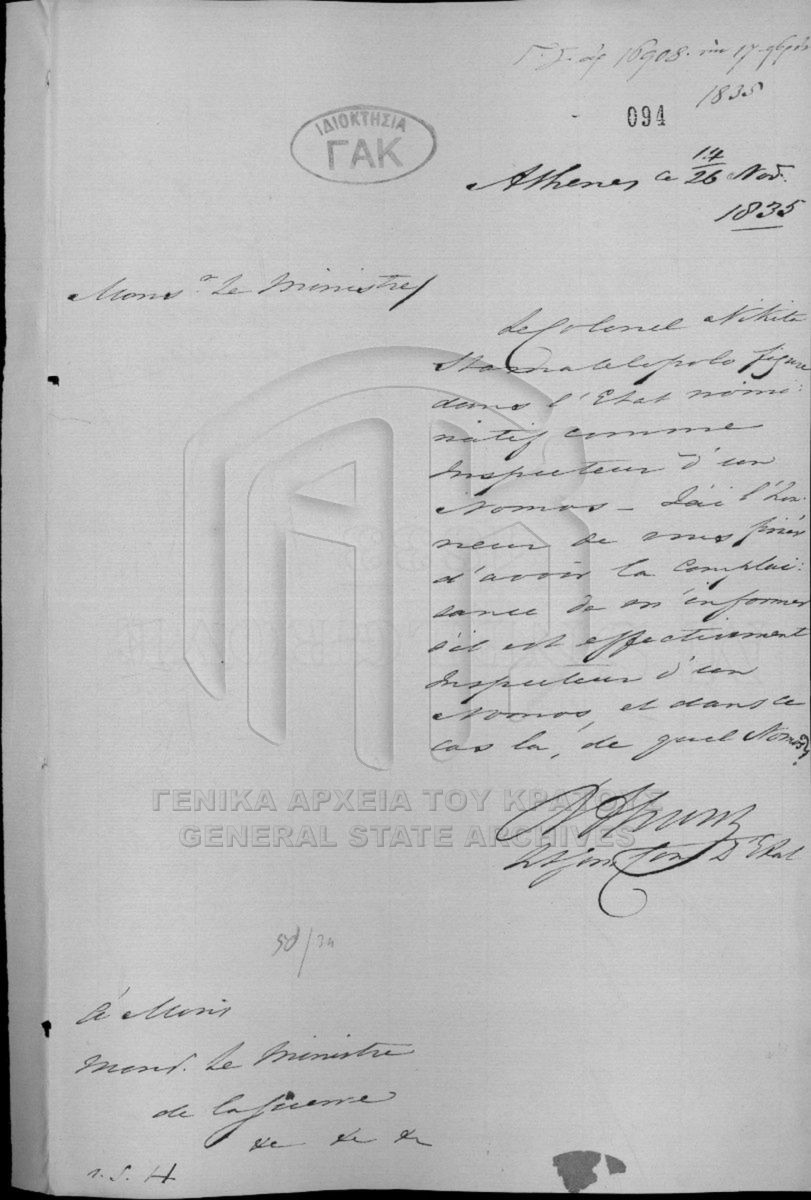 Γ.Σ. ἀρ 16908. τὴν 17 9βρίου
1835
094
ΙΔΙΟΚΤΗΣΙΑ
ΓΑΚ
Athenes ce 14/26 Nov.
1835
Monsr Le Ministre
Le Colonel Nikita
Stamatelopolo figure
dans l'Etat nomi:
natif comme
Inspecteur d'un
Nomos – J'ai l'hon:
neur de vous prier
d'avoir la complai:
sance de m'informer
s'il est effectivement
Inspecteur d'un
Nomos, et dans ce
cas là, de quel Nomos?
ΓΕΝΙΚΑ ΑΡΧΕΙΑ ΤΟΥ ΚΡΑΤΟΥΣ
GENERAL STATE ARCHIVES
D'Etat
à Mons
Mons. Le Ministre
de la Guerre
&c &c &c